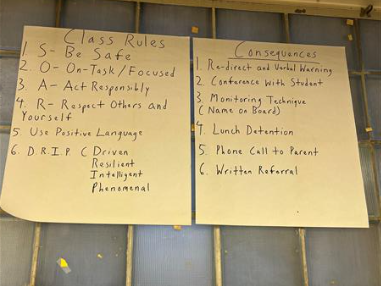 Class Rules
1. S- Be Safe
2. O- On-Task/Focused
3. A- Act Responsibly
4. R- Respect Others and
Yourself
5. Use Positive Language
6. D.R.I.P. ( Driven
Resilient
Intelligent
Phenomenal
Consequences
1. Re-direct and Verbal Warning
2. Conference With Student
3. Monitoring Technique
(Name on Board)
4. Lunch Detention
5. Phone Call to Parent
6. Written Referral